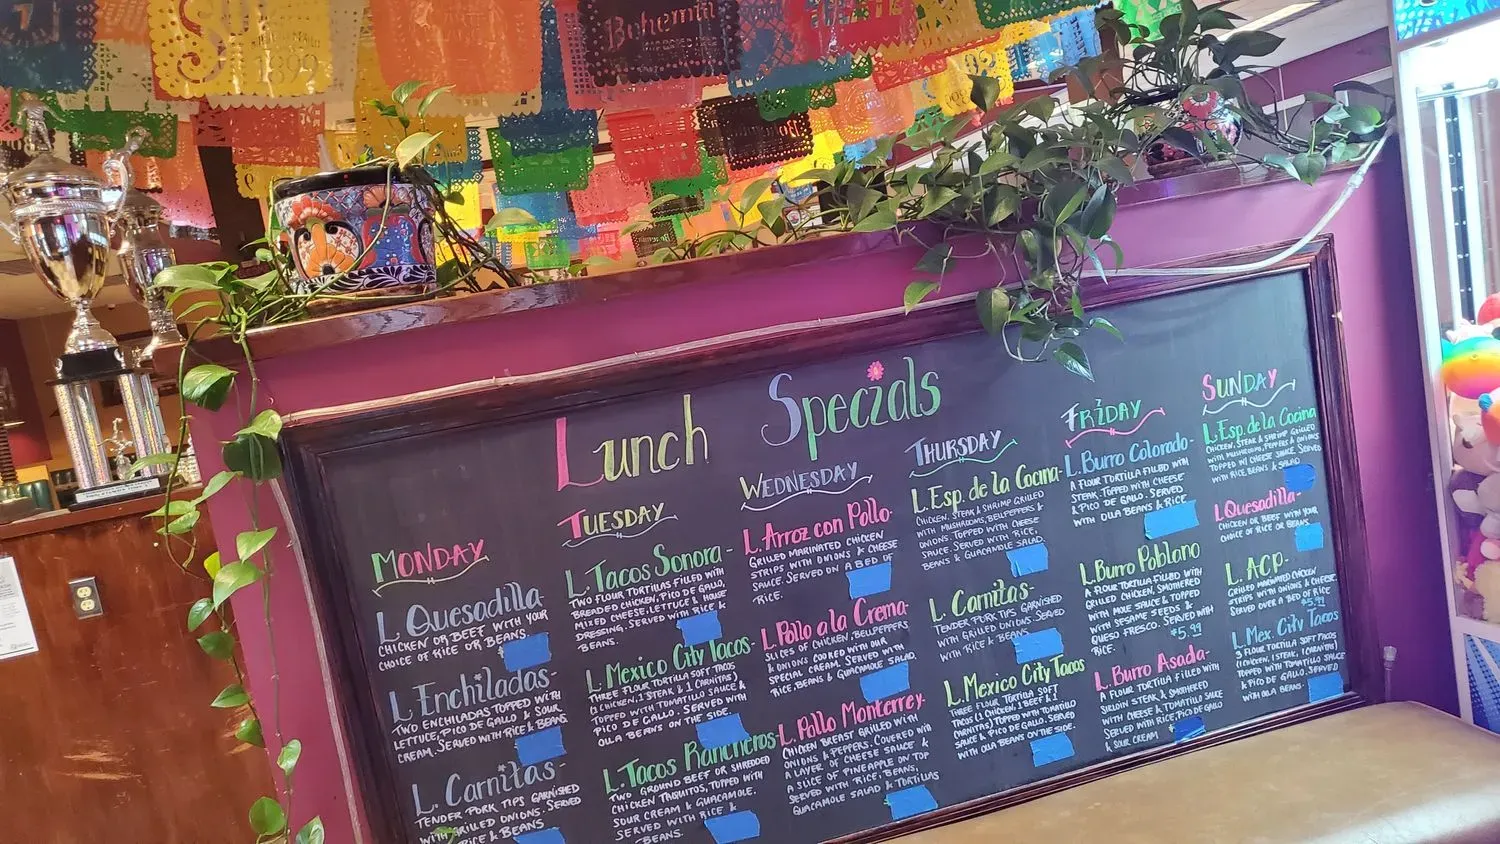 Bohemia
1899
Lunch Specials
MONDAY
L. Quesadilla-
CHICKEN OR BEEF WITH YOUR
CHOICE OF RICE OR BEANS.
L. Enchiladas-
TWO ENCHILADAS TOPPED WITH
LETTUCE, PICO DE GALLO & SOUR
CREAM. SERVED WITH RICE & BEANS.
L. Carnitas-
TENDER PORK TIPS GARNISHED
WITH GRILLED ONIONS. SERVED
RICE & BEANS.
TUESDAY
L. Tacos Sonora-
TWO FLOUR TORTILLAS FILLED WITH
BREADED CHICKEN, PICO DE GALLO,
MIXED CHEESE, LETTUCE & HOUSE
DRESSING. SERVED WITH RICE &
L. Mexico City Tacos-
THREE FLOUR TORTILLA SOFT TACOS
(1 CHICKEN, 1 STEAK & 1 CARNITAS)
TOPPED WITH TOMATILLO SAUCE &
PICO DE GALLO. SERVED WITH
OLLA BEANS ON THE SIDE.
L. Tacos Rancheros-
TWO GROUND BEEF OR SHREDDED
CHICKEN TAQUITOS, TOPPED WITH
SOUR CREAM & GUACAMOLE.
SERVED WITH RICE &
BEANS.
WEDNESDAY
L. Arroz con Pollo-
GRILLED MARINATED CHICKEN
STRIPS WITH ONIONS & CHEESE
SAUCE. SERVED ON A BED OF
RICE.
L. Pollo a la Crema-
SLICES OF CHICKEN, BELLPEPPERS
& ONIONS COOKED WITH OUR
SPECIAL CREAM. SERVED WITH
RICE, BEANS & GUACAMOLE SALAD.
L. Pollo Monterrey-
CHICKEN BREAST GRILLED WITH
ONIONS & PEPPERS. COVERED WITH
A LAYER OF CHEESE SAUCE &
A SLICE OF PINEAPPLE ON TOP
SERVED WITH RICE, BEANS,
GUACAMOLE SALAD & TORTILLAS
THURSDAY
L. Esp. de la Cocina-
CHICKEN, STEAK & SHRIMP GRILLED
WITH MUSHROOMS, BELLPEPPERS &
ONIONS. TOPPED WITH CHEESE
SAUCE. SERVED WITH RICE,
BEANS & GUACAMOLE SALAD.
L. Carnitas-
TENDER PORK TIPS GARNISHED
WITH GRILLED ONIONS. SERVED
WITH RICE & BEANS
L. Mexico City Tacos
THREE FLOUR TORTILLA SOFT
TACOS (1 CHICKEN, 1 BEEF & 1
CARNITAS) TOPPED WITH TOMATILLO
SAUCE & PICO DE GALLO. SERVED
WITH OLLA BEANS ON THE SIDE.
FRIDAY
L. Burro Colorado-
A FLOUR TORTILLA FILLED WITH
STEAK. TOPPED WITH CHEESE
& PICO DE GALLO. SERVED
WITH OLLA BEANS & RICE
L. Burro Poblano
A FLOUR TORTILLA FILLED WITH
GRILLED CHICKEN, SMOTHERED
WITH MOLE SAUCE & TOPPED
WITH SESAME SEEDS &
QUESO FRESCO. SERVED WITH
RICE. $5.99
L. Burro Asada-
A FLOUR TORTILLA FILLED WITH
SIRLOIN STEAK & SMOTHERED
WITH CHEESE & TOMATILLO SAUCE
SERVED WITH RICE, PICO DE GALLO
& SOUR CREAM
SUNDAY
L. Esp. de la Cocina
CHICKEN, STEAK & SHRIMP GRILLED
WITH MUSHROOMS, PEPPERS & ONIONS
TOPPED W/ CHEESE SAUCE. SERVED
W/ RICE BEANS & SALAD
L. Quesadilla-
CHICKEN OR BEEF WITH YOUR
CHOICE OF RICE OR BEANS.
L. ACP-
GRILLED MARINATED CHICKEN
STRIPS WITH ONIONS & CHEESE.
SERVED OVER A BED OF RICE
$5.99
L. Mex. City Tacos
3 FLOUR TORTILLA SOFT TACOS
(1 CHICKEN, 1 STEAK, 1 CARNITAS)
TOPPED W/ TOMATILLO SAUCE
& PICO DE GALLO. SERVED
W/ OLLA BEANS.